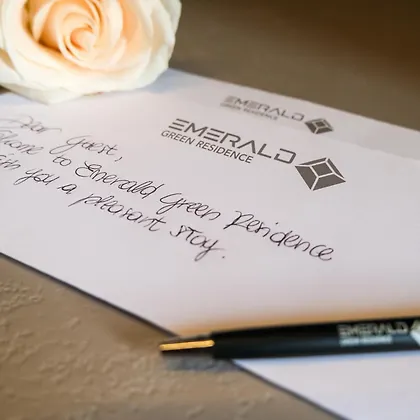 EMERALD
GREEN RESIDENCE
EMERALD
GREEN RESIDENCE
Dear Guest,
to Emerald Green Residence
you a pleasant stay.
EMERALD